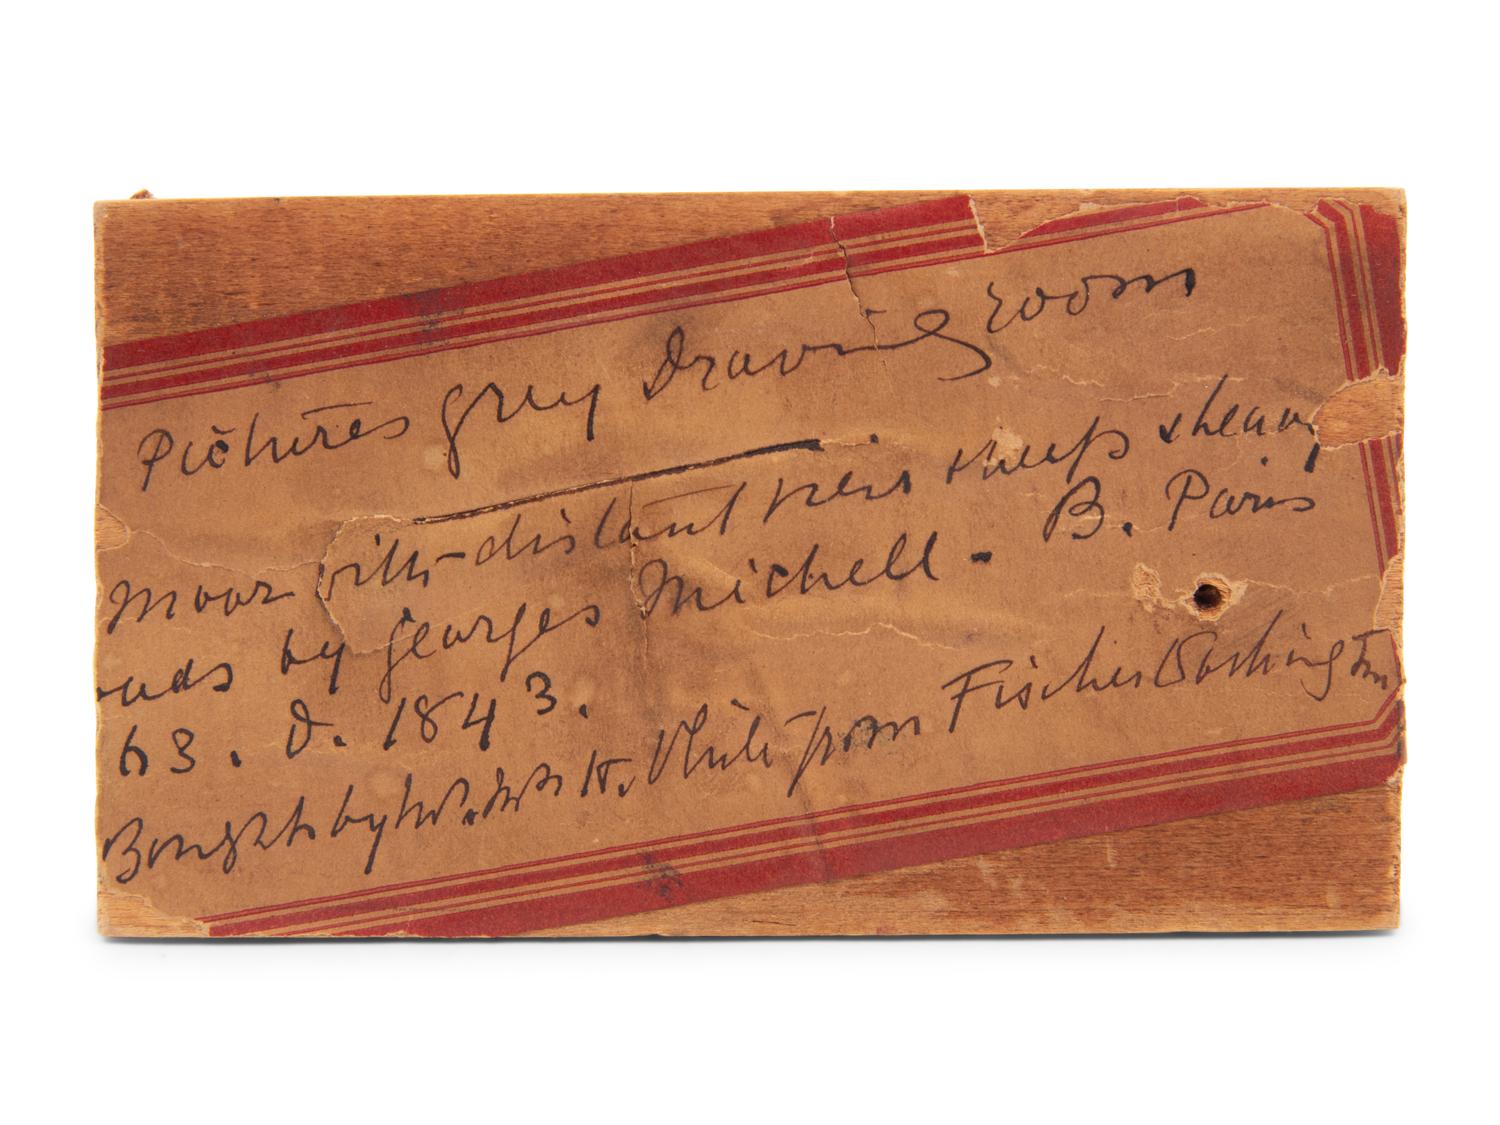 Pictures grey Drawing room
Moor with distant view sheep & heavy
by Georges Michell - B. Paris
63. d. 1843.
Bought by H. White from Fischer Washington